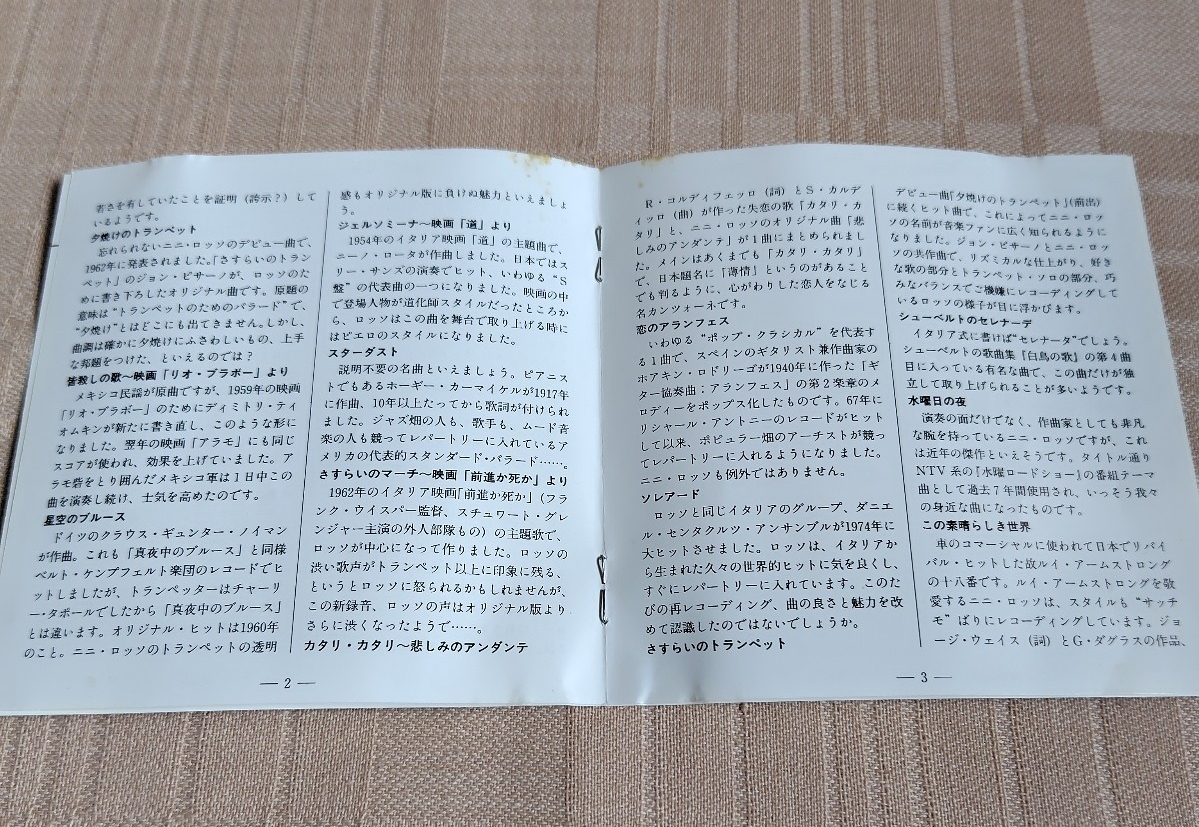 若さを有していたことを証明（誇示？）して
いるようです。
夕焼けのトランペット
忘れられないニニ・ロッソのデビュー曲で、
1962年に発表されました。「さすらいのトラン
ペット」のジョン・ピサーノが、ロッソのた
めに書き下ろしたオリジナル曲です。原題の
意味は“トランペットのためのバラード”で、
“夕焼け”とはどこにも出てきません。しかし、
曲調は確かに夕焼けにふさわしいもの、上手
な邦題をつけた、といえるのでは？
皆殺しの歌〜映画「リオ・ブラボー」より
メキシコ民謡が原曲ですが、1959年の映画
「リオ・ブラボー」のためにディミトリ・ティ
オムキンが新たに書き直し、このような形に
なりました。翌年の映画「アラモ」にも同じ
スコアが使われ、効果を上げていました。ア
ラモ砦をとり囲んだメキシコ軍は1日中この
曲を演奏し続け、士気を高めたのです。
星空のブルース
ドイツのクラウス・ギュンター・ノイマン
が作曲。これも「真夜中のブルース」と同様
ベルト・ケンプフェルト楽団のレコードでヒ
ットしましたが、トランペッターはチャーリ
ー・タボールでしたから「真夜中のブルース」
とは違います。オリジナル・ヒットは1960年
のこと。ニニ・ロッソのトランペットの透明
感もオリジナル版に負けぬ魅力といえましょ
う。
ジェルソミーナ〜映画「道」より
1954年のイタリア映画「道」の主題曲で、
ニーノ・ロータが作曲しました。日本ではス
リー・サンズの演奏でヒット、いわゆる“S
盤”の代表曲の一つになりました。映画の中
で登場人物が道化師スタイルだったところか
ら、ロッソはこの曲を舞台で取り上げる時に
はピエロのスタイルになりました。
スターダスト
説明不要の名曲といえましょう。ピアニス
トでもあるホーギー・カーマイケルが1917年
に作曲、10年以上たってから歌詞が付けられ
ました。ジャズ畑の人も、歌手も、ムード音
楽の人も競ってレパートリーに入れているア
メリカの代表的スタンダード・バラード……。
さすらいのマーチ〜映画「前進か死か」より
1962年のイタリア映画「前進か死か」（フラ
ンク・ウイスバー監督、スチュワート・グレ
ンジャー主演の外人部隊もの）の主題歌で、
ロッソが中心になって作りました。ロッソの
渋い歌声がトランペット以上に印象に残る、
というとロッソに怒られるかもしれませんが、
この新録音、ロッソの声はオリジナル版より
さらに渋くなったようで……。
カタリ・カタリ〜悲しみのアンダンテ
— 2 —
R・コルディフェッロ（詞）とS・カルデ
ィッロ（曲）が作った失恋の歌「カタリ・カ
タリ」と、ニニ・ロッソのオリジナル曲「悲
しみのアンダンテ」が1曲にまとめられまし
た。メインはあくまでも「カタリ・カタリ」
で、日本題名に「薄情」というのがあること
でも判るように、心がわりした恋人をなじる
名カンツォーネです。
恋のアランフェス
いわゆる“ポップ・クラシカル”を代表す
る1曲で、スペインのギタリスト兼作曲家の
ホアキン・ロドリーゴが1940年に作った「ギ
ター協奏曲；アランフェス」の第2楽章のメ
ロディーをポップス化したものです。67年に
リシャール・アントニーのレコードがヒット
して以来、ポピュラー畑のアーチストが競っ
てレパートリーに入れるようになりました。
ニニ・ロッソも例外ではありません。
ソレアード
ロッソと同じイタリアのグループ、ダニエ
ル・センタクルツ・アンサンブルが1974年に
大ヒットさせました。ロッソは、イタリアか
ら生まれた久々の世界的ヒットに気を良くし、
すぐにレパートリーに入れています。このた
びの再レコーディング、曲の良さと魅力を改
めて認識したのではないでしょうか。
さすらいのトランペット
デビュー曲「夕焼けのトランペット」（前出）
に続くヒット曲で、これによってニニ・ロッ
ソの名前が音楽ファンに広く知られるように
なりました。ジョン・ピサーノとニニ・ロッ
ソの共作曲で、リズミカルな仕上がり、好き
な歌の部分とトランペット・ソロの部分、巧
みなバランスでご機嫌にレコーディングして
いるロッソの様子が目に浮かびます。
シューベルトのセレナーデ
イタリア式に書けば“セレナータ”でしょう。
シューベルトの歌曲集「白鳥の歌」の第4曲
目に入っている有名な曲で、この曲だけが独
立して取り上げられることが多いようです。
水曜日の夜
演奏の面だけでなく、作曲家としても非凡
な腕を持っているニニ・ロッソですが、これ
は近年の傑作といえそうです。タイトル通り
NTV系の『水曜ロードショー』の番組テーマ
曲として過去7年間使用され、いっそう我々
の身近な曲になったものです。
この素晴らしき世界
車のコマーシャルに使われて日本でリバイ
バル・ヒットした故ルイ・アームストロング
の十八番です。ルイ・アームストロングを敬
愛するニニ・ロッソは、スタイルも“サッチ
モ”ばりにレコーディングしています。ジョ
ージ・ウェイス（詞）とG・ダグラスの作品、
— 3 —